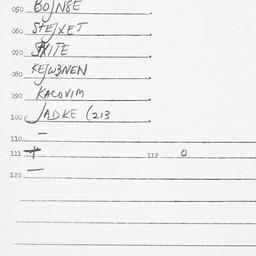 050 BOJNSE
060 STEJXET
070 SXITE
080 KEJW3NEN
090 KACOVIM
100 JADKE (213
110 —
111 + 112 0
120 —